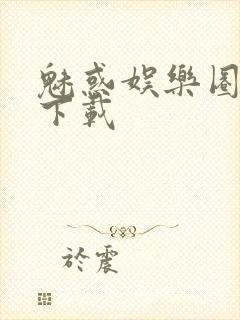 魅惑娛樂圈
下載
於震